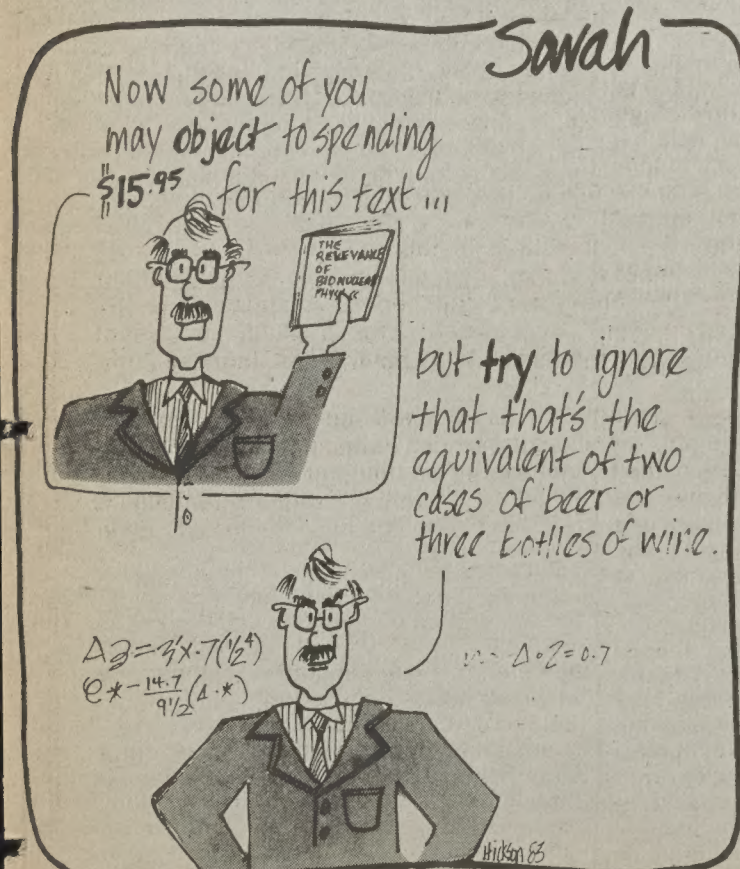 Sarah
Now some of you
may object to spending
$15.95 for this text...
THE
RELEVANCE
OF
BIONUCLEAR
PHYSICS
but try to ignore
that that's the
equivalent of two
cases of beer or
three bottles of wine.
=
14.7
9 1/2
Δ∘2=0.7
Hickson 83